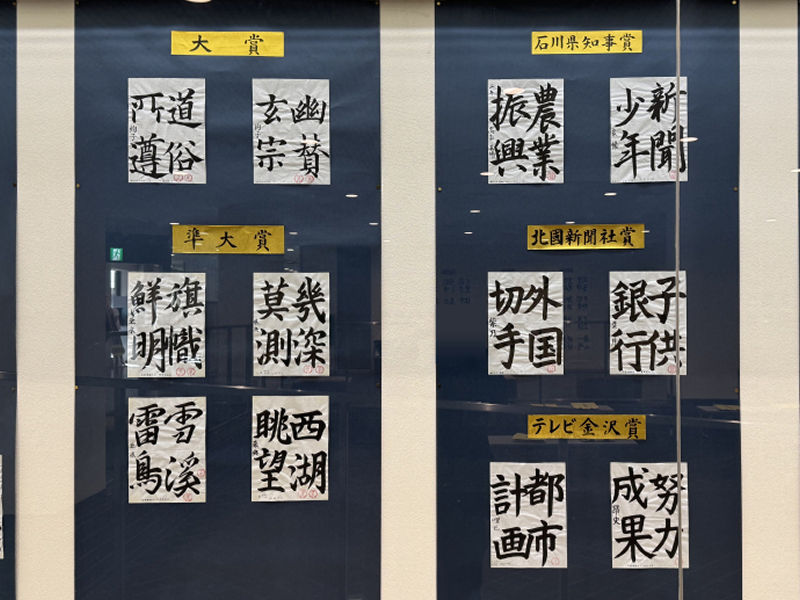 大賞
道俗
遵
幽賛
玄宗
準大賞
旗幟
鮮明
幾深
莫測
雪溪
雷鳥
西湖
眺望
石川県知事賞
農業
振興
新聞
少年
北國新聞社賞
外国
切手
子供
銀行
テレビ金沢賞
都市
計画
努力
成果